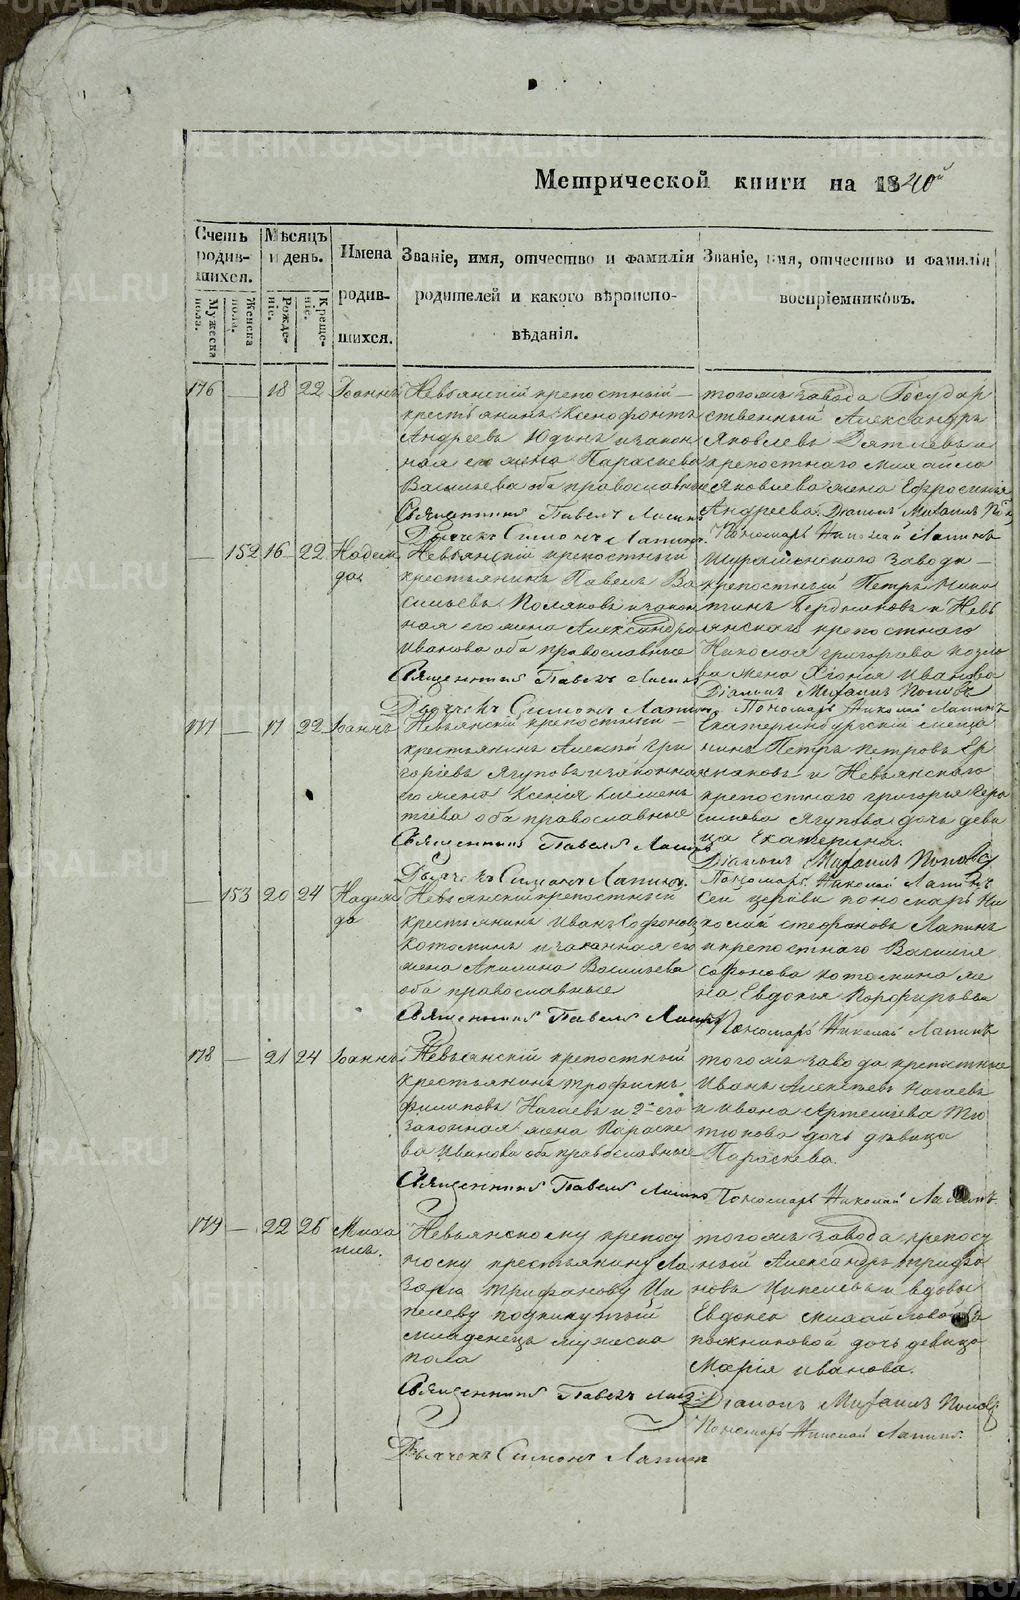 METRIKI.GASO-URAL.RU
Метрической книги на 1840й
Счетъ родившихся.
Мужеска пола.
Женска пола.
Мѣсяцъ и день.
Рожденіе.
Крещеніе.
Имена родившихся.
Званіе, имя, отчество и фамилія
родителей и какого вѣроиспо-
вѣданія.
Званіе, имя, отчество и фамилія
воспріемниковъ.
176 — 18 22 Іоаннъ
Невьянскій крепостный
крестьянинъ Ксенофонтъ
Андреевъ Юдинъ и закон
ная его жена Параскева
Васильева оба православные
Священникъ Павелъ
Дьячекъ Симонъ Лапинъ
тогожъ завода Государ
ственный Александръ
Яковлевъ Дятлевъ и
крепостнаго Михайла
Яковлева жена Ефросинія
Андреева. Діаконъ Михаилъ
Пономарь Николай Лапинъ
— 152 16 22 Надеж
да
Невьянскій крепостный
крестьянинъ Павелъ Ва
сильевъ Поляковъ и закон
ная его жена Александра
Иванова оба православные
Священникъ Павелъ
Дьячекъ Симонъ Лапинъ
Шуралинскаго завода
крепостный Петръ Ники
тинъ Бердниковъ и Невь
янскаго крепостнаго
Николая Григорьева Козло
ва жена Хіонія Иванова
Діаконъ Михаилъ Поповъ
Пономарь Николай Лапинъ
177 — 17 22 Іоаннъ
Невьянскій крепостный
крестьянинъ Алексѣй Гри
горіевъ Ягуповъ и законная
его жена Ксенія Климен
тьева оба православные
Священникъ Павелъ
Дьячекъ Симонъ Лапинъ
Екатеринбургскій меща
нинъ Петръ Петровъ Ер
маковъ и Невьянскаго
крепостнаго Григорья Гера
симова Ягупова дочь деви
ца Екатерина.
Діаконъ Михаилъ Поповъ
Пономарь Николай Лапинъ
— 153 20 24 Надеж
да
Невьянскій крепостный
крестьянинъ Иванъ Софоновъ
Котомкинъ и законная его
жена Акилина Васильева
оба православные
Священникъ Павелъ
Сей церкви пономарь Ни
колай Стефановъ Лапинъ
и крепостнаго Василія
Софонова Котомкина же
на Евдокія Порфирьева
Пономарь Николай Лапинъ
178 — 21 24 Іоаннъ
Невьянскій крепостный
крестьянинъ Трофимъ
Филиповъ Нагаевъ и 2я его
законная жена Параске
ва Иванова оба православные
Священникъ Павелъ
тогожъ завода крепостные
Иванъ Алексѣевъ Нагаевъ
и Ивана Артемьева Тю
тюкова дочь девица
Параскева.
Пономарь Николай Лапинъ
179 — 22 26 Миха
илъ.
Невьянскому крепост
ному крестьянину Ла
зарю Трифанову Ци
пелеву подкинутый
младенецъ мужеска
пола
Священникъ Павелъ
Дьячекъ Симонъ Лапинъ
тогожъ завода крепост
ный Александръ Трифа
новъ Ципелевъ и вдовы
Евдокеи Михайловой
дочь девица
Марія Иванова.
Діаконъ Михаилъ Поповъ
Пономарь Николай Лапинъ.